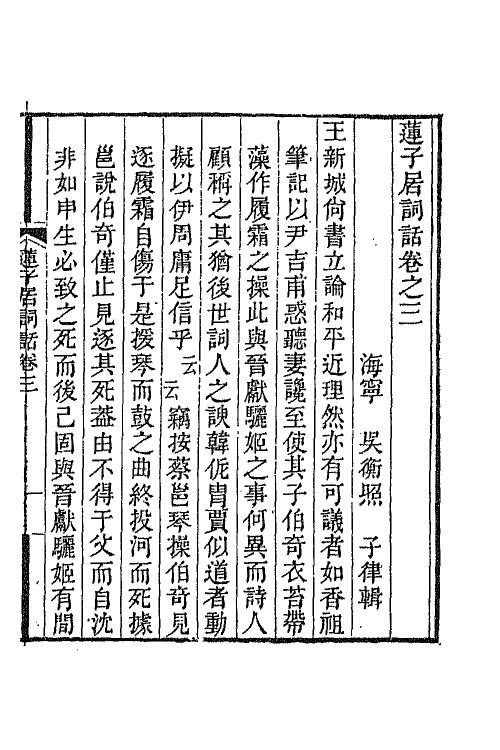 蓮子居詞話卷之三
海寧 吳衡照 子律輯
王新城尙書立論和平近理然亦有可議者如香祖
筆記以尹吉甫惑聽妻讒至使其子伯奇衣苔帶
藻作履霜之操此與晉獻驪姬之事何異而詩人
顧稱之其猶後世詞人之諛韓侂胄賈似道者動
擬以伊周庸足信乎云云竊按蔡邕琴操伯奇見
逐履霜自傷于是援琴而鼓之曲終投河而死據
邕說伯奇僅止見逐其死葢由不得于父而自沈
非如申生必致之死而後已固與晉獻驪姬有間
蓮子居詞話卷三